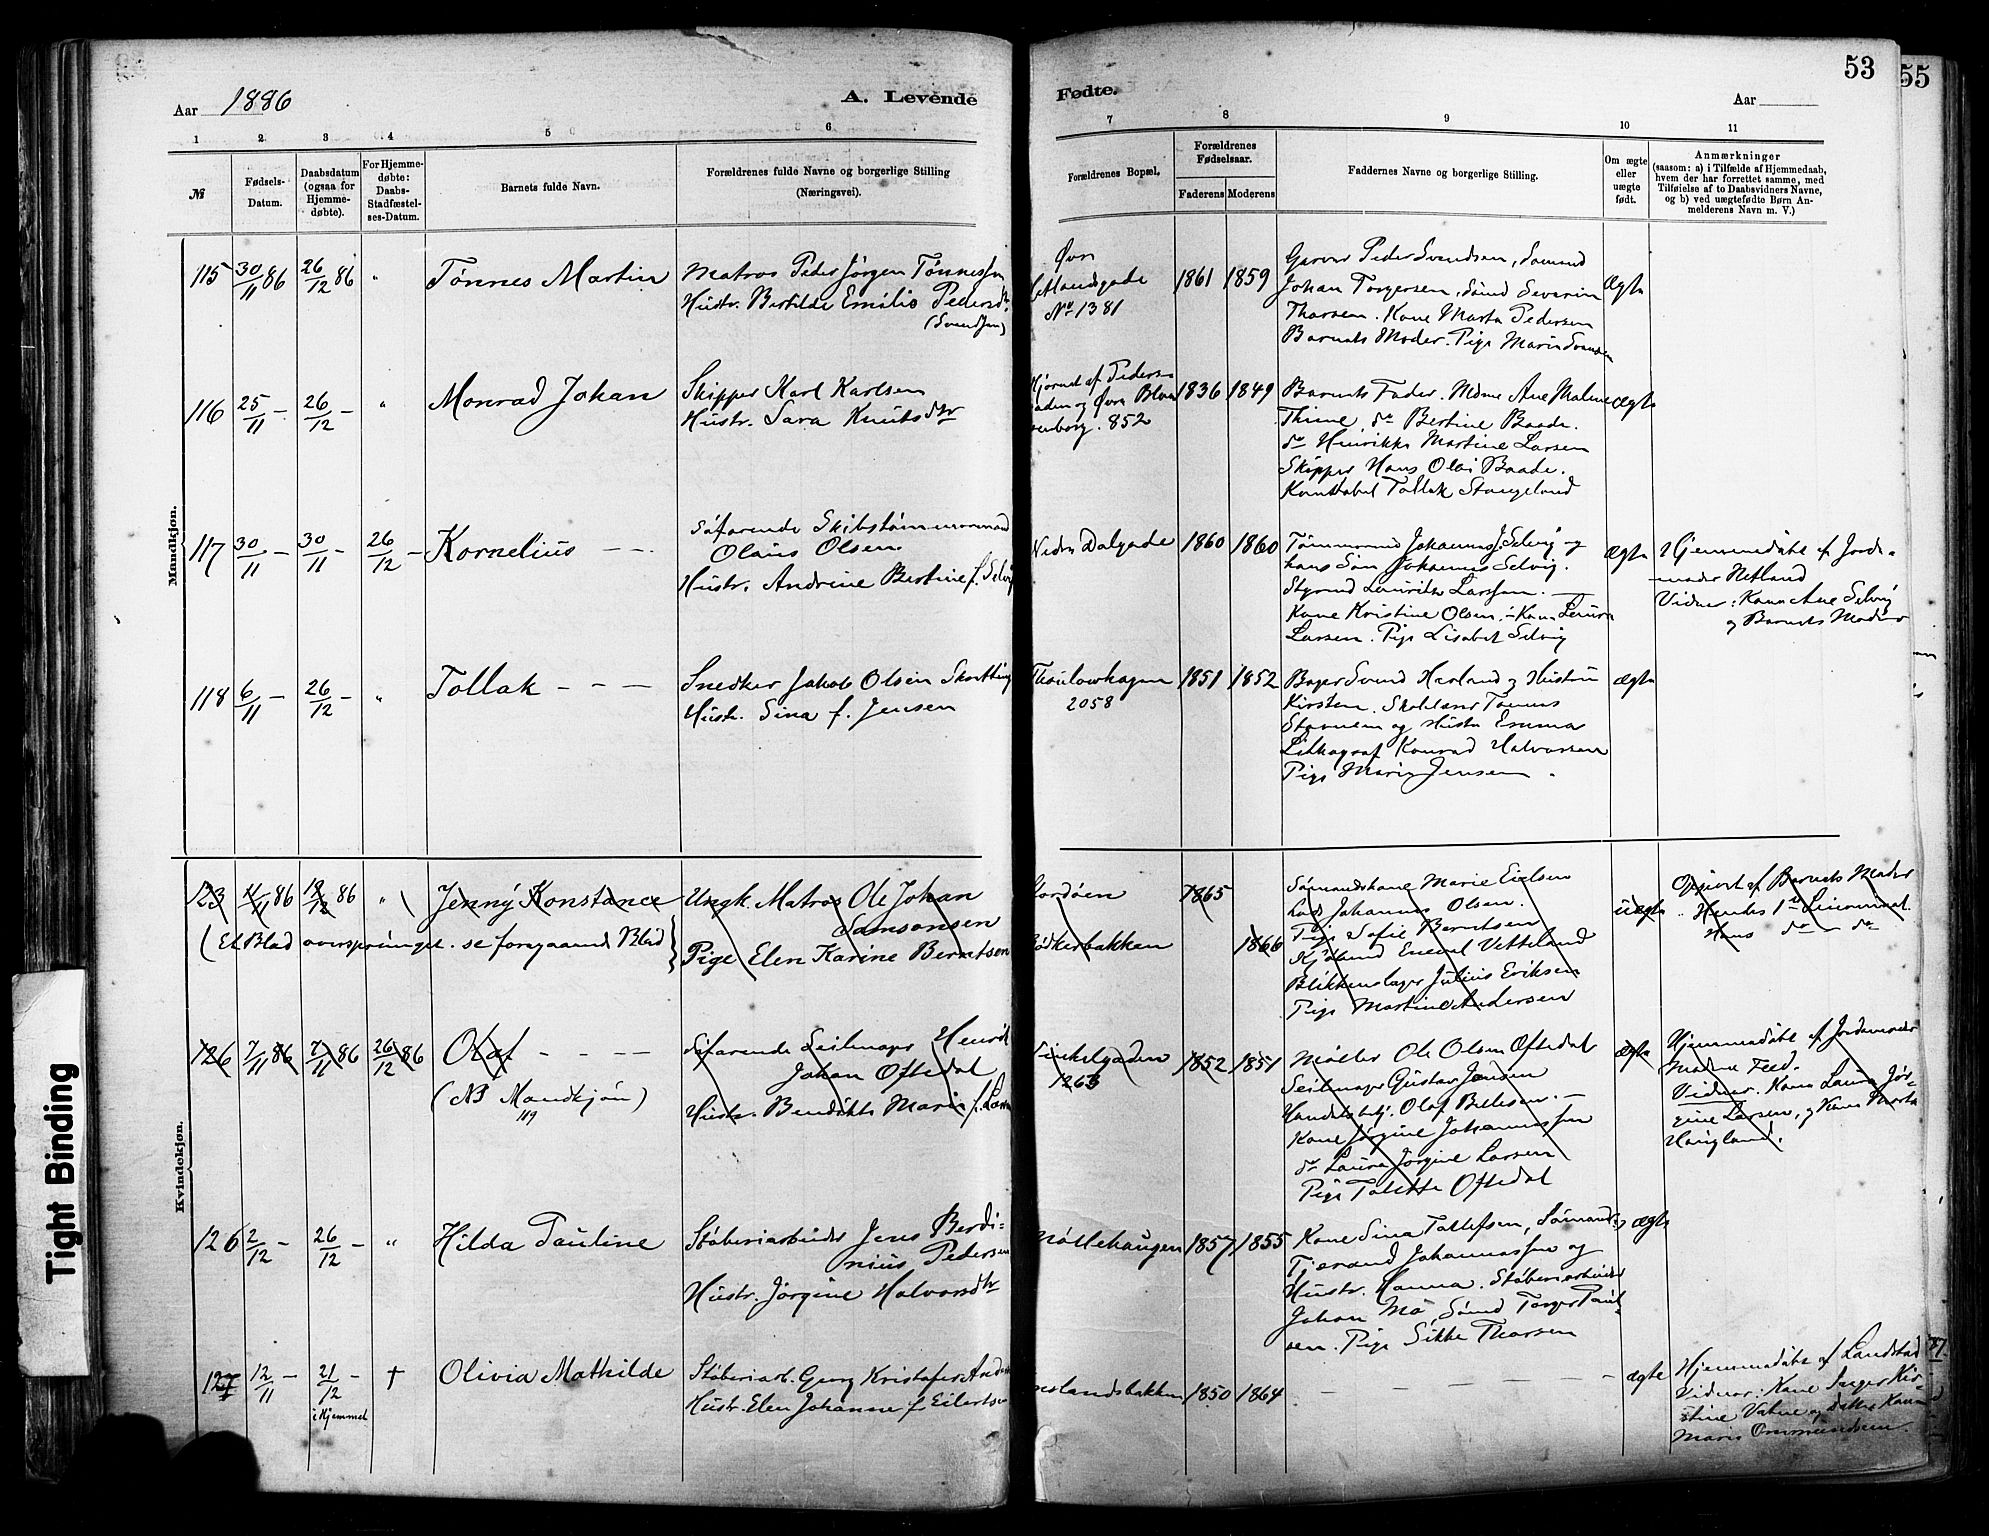 53
55
Aar 1886
A. Levende
Fødte.
Aar
1 2 3 4 5 6 7 8 9 10 11
№
Fødsels-
Datum.
Daabsdatum
(ogsaa for
Hjemme-
døbte).
For Hjemme-
døbte:
Daabs-
Stadfæstel-
ses-Datum.
Barnets fulde Navn.
Forældrenes fulde Navne og borgerlige Stilling
(Næringsvei).
Forældrenes Bopæl.
Forældrenes
Fødselsaar.
Faderens
Moderens
Faddernes Navne og borgerlige Stilling.
Om ægte
eller
uægte
født.
Anmærkninger
(saasom: a) i Tilfælde af Hjemmedaab,
hvem der har forrettet samme, med
Tilføielse af to Daabsvidners Navne,
og b) ved uægtefødte Børn An-
melderens Navn m. V.)
Mandkjøn.
115 30/11 86 26/12 86 " Tønnes Martin
Matros Peder Jørgen Tønnessen
Hustr. Bertilde Emilie Pedersdtr
(Svendsen)
Øvre
No 1381
1861 1859
Garver Peder Svendsen, Sømand
Johan Torgersen, Sømd Severin
Thorsen. Kone Marta Pedersen
Barnets Moder. Pige Marie Svensen
Ægte
116 25/11 - 26/12 - " Monrad Johan
Skipper Karl Karlsen
Hustr. Sara Knutsdtr
Hjørnet af Peders-
gaden og Øvre Blaa-
senborg. 852
1836 1849
Barnets Fader. Mdme Ane Malene
Thime, do Bertine Baade.
do Henrikke Martine Larsen
Skipper Hans Olai Baade.
Konstabel Tollak Stangeland
ægte
117 30/11 - 30/11 - 26/12 - Kornelius - -
Søfarende Skibstømmermand
Olaus Olsen
Hustr. Andrine Bertine f. Selvig
Nedre Dalgade
1860 1860
Tømmermd Johannes J. Selvig og
hans Søn Johannes Selvig.
Styrmd Lauritz Larsen. -
Kone Kristine Olsen, - Kone Laura
Larsen. Pige Lisabet Selvig
ægte
Hjemmedøbt af Jorde-
moder Hetland
Vidner: Kone Ane Selvig
og Barnets Moder
118 6/11 - 26/12 - " Tollak - - -
Snedker Jakob Olsen
Hustr. Sina f. Jensen
Thoulowhagen
2058
1851 1852
Bager Svend Harland og Hustru
Kirsten. Tønnes
og Hustr Emma
Lithograf Konrad Halvorsen
Pige Marie Jensen
ægte
Kvindekjøn.
123 4/11 86 12/12 86 " Jenny Konstance
(Et Blad oversprunget. se foregaaende Blad)
Ungk. Matros Ole Johan
Samsonsen
Pige Elen Karine Berntsen
Bødkerbakken
1865
1866
Sømandskone Marie Eielsen
Lods Johannes Olsen.
Pige Sofie Berntsen
Kjøbmd Enevel Vetteland
Blikkenslager Julius Eriksen
Pige Martine Andersen
uægte
Opgivet af Barnets Moder
Hendes 1ste Leiermaal.
Hans do - do
126 7/11 86 7/11 86 26/12 86 Olaf - - - -
(NB Mandkjøn)
119
Søfarende Seilmager Henrik
Johan Oftedal
Hustr. Bendikte Marie f. Larsen
Vinkelgaden
1263
1852 1851
Møller Ole Olsen Oftedal
Seilmager Gustav Jensen
Handelsbetj. Olaf Bellesen. -
Kone Jørgine Johannessen
do Laura Jørgine Larsen
Pige Talette Oftedal
ægte
Hjemmedøbt af Jordemoder
Madme Feed.
Vidner. Kone Laura Jør-
gine Larsen, og Kone Marta
Haugland.
126 2/12 - 26/12 - " Hilda Pauline
Støberiarbeider Jens Berdi-
nius Pedersen
Hustr. Jørgine Halvorsdtr
Møllehaugen
1857 1855
Kone Sina Tollefsen, Sømand
Tjerand Johannessen og
Hustr. Hanna. Støberiarbeider
Johan Mø, Sømd Torger Paul-
sen. Pige Sikke Thorsen
ægte
127 12/11 - 21/12 - † Olivia Mathilde
i Hjemmet
Støberiarb. Georg Kristofer Anders
Hustr. Elen Johanne f. Eilertsen
1850 1864
- - - - - -
ægte
Hjemmedøbt af Landstad
Vidner: Kone Inger Kir-
stine Vatne og Kone
Marie Ommundsen.
Tight Binding